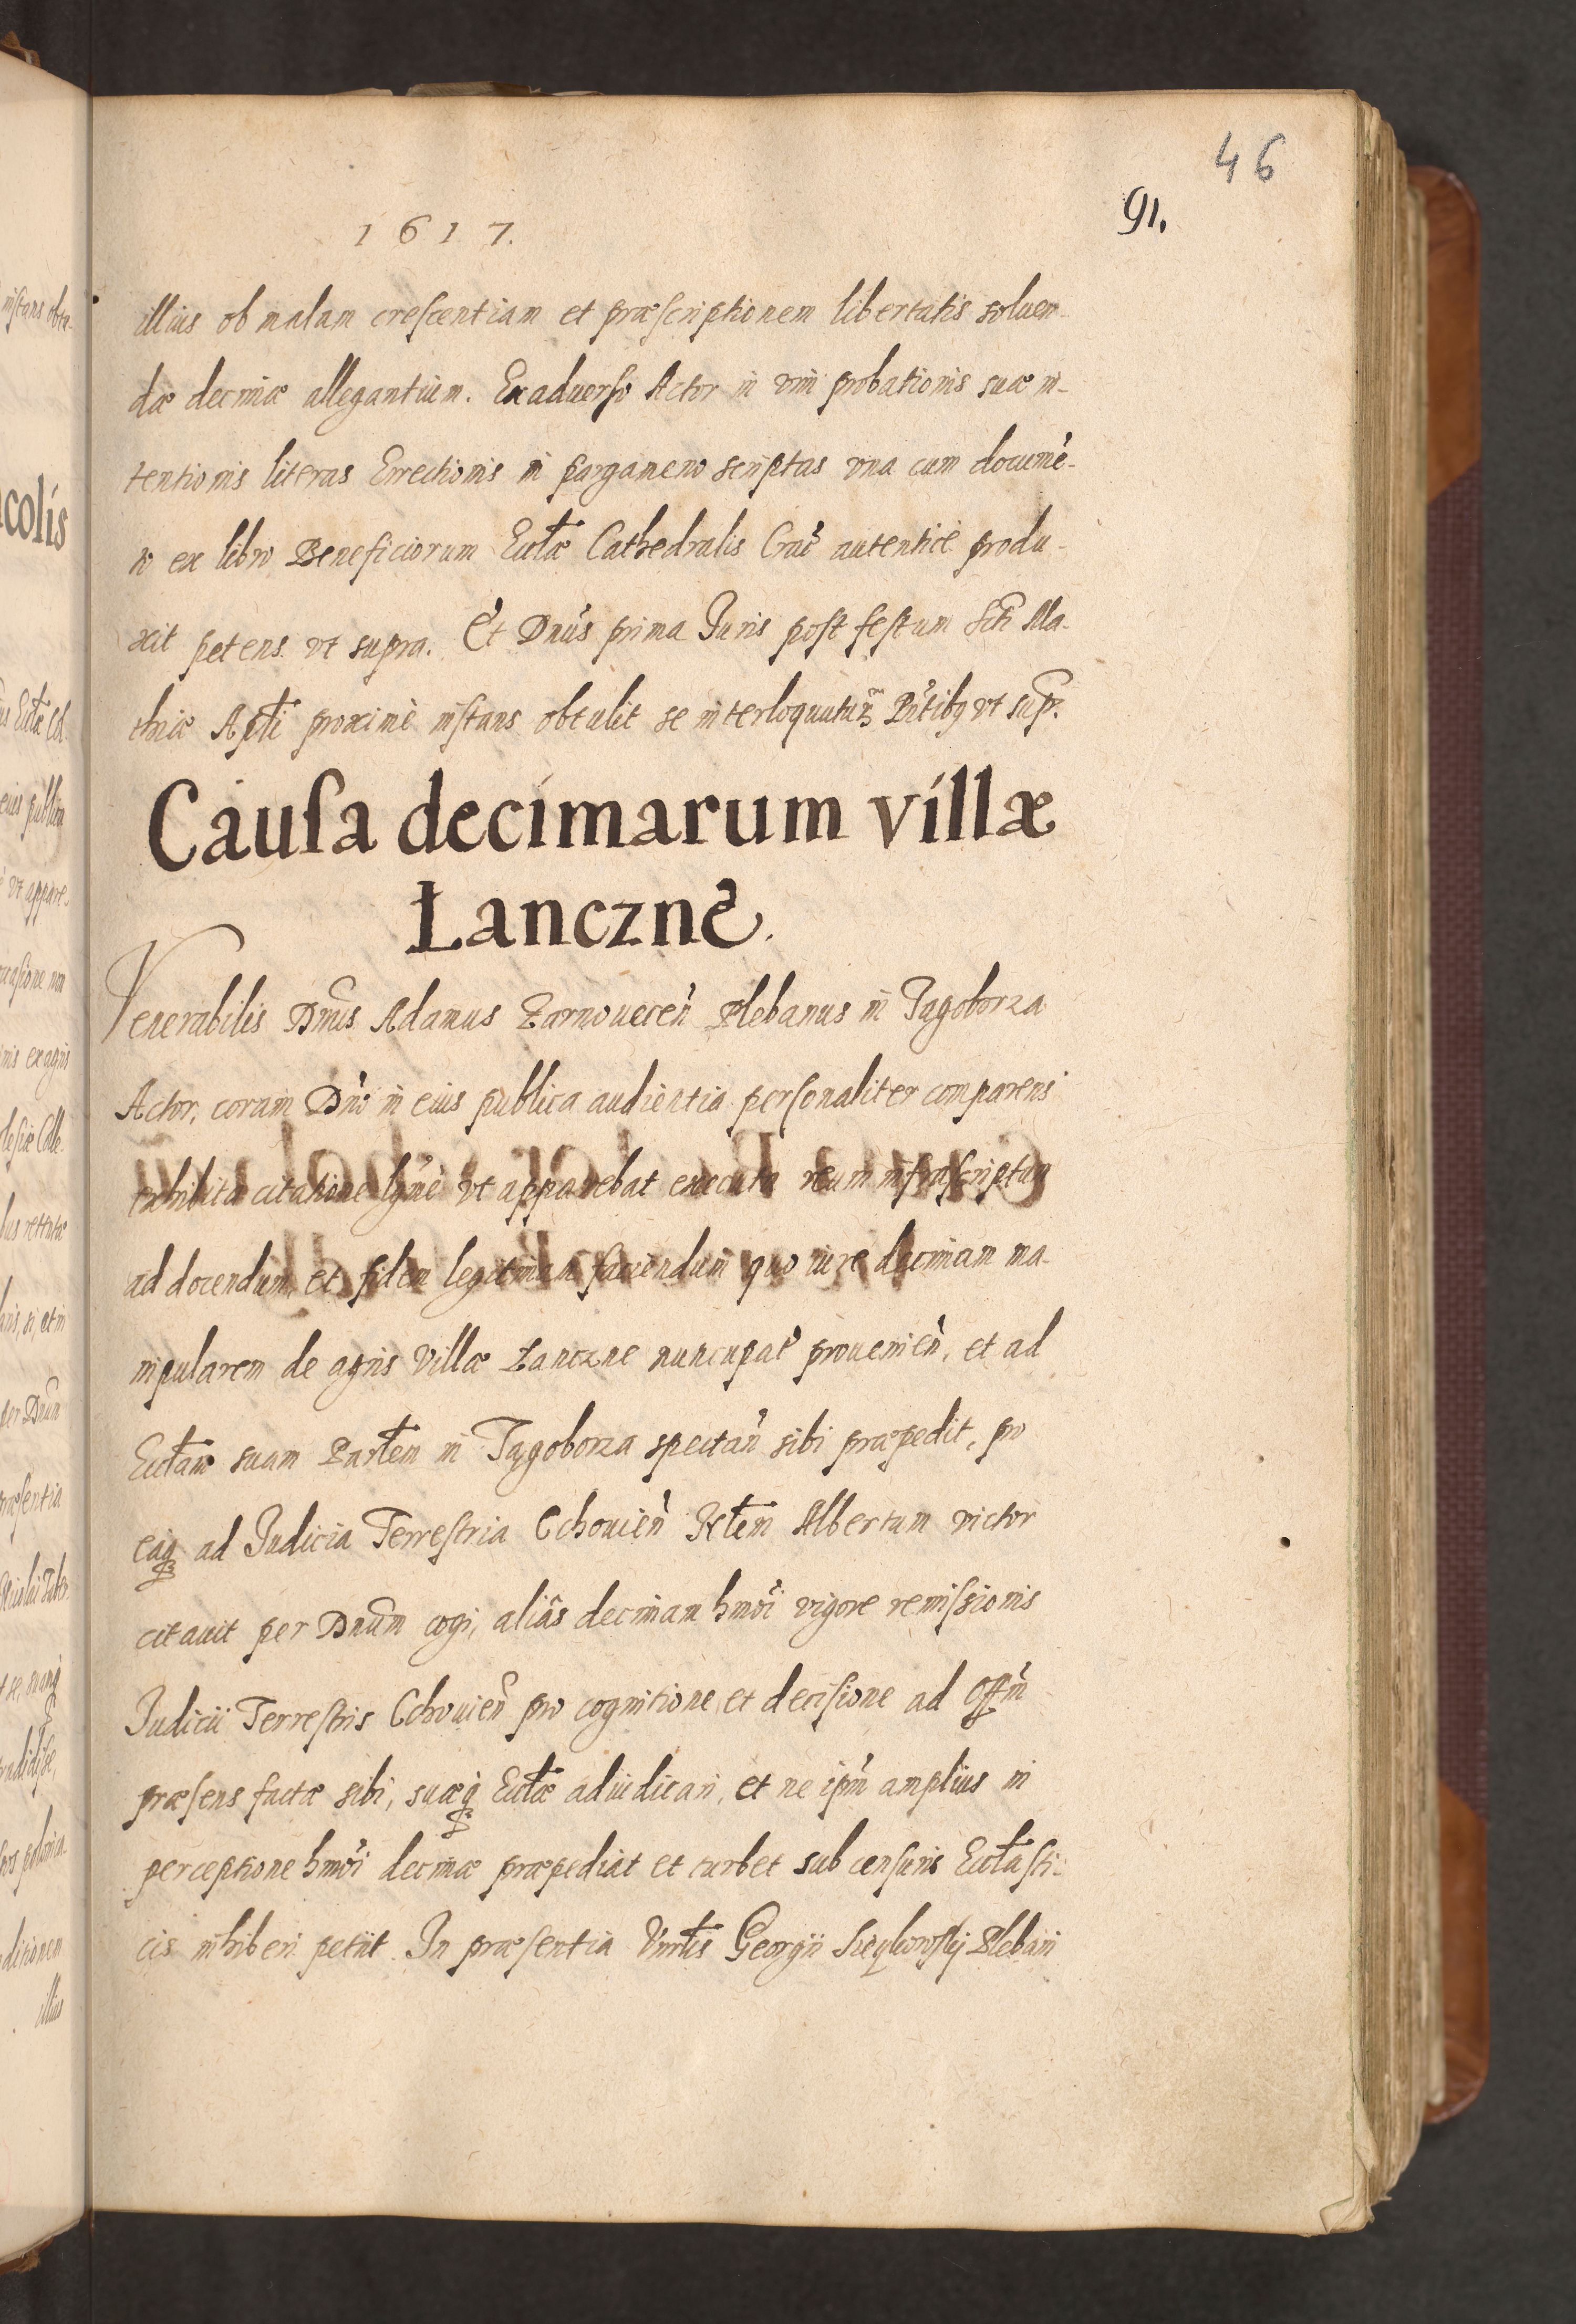 46
91.
1617.
illius ob malam crescentiam et præscriptionem libertatis soluen-
dæ decimæ allegantium. Ex aduerso Actor in vim probationis suæ in-
tentionis literas Errectionis in pargameno scriptas vna cum documē-
to ex libro Beneficiorum Ecctæ Cathedralis Crać autenticè produ-
xit petens vt supra. Et Dnús prima Juris post festum Scti Ma-
thiæ Apti proximè instans obtulit se interloquuturū Pñtibq vt supr.
Causa decimarum villæ
Lanczne.
Venerabilis Dnús Adamus Zarnoueceñ Plebanus in Jagoborza
Actor, coram Dńo in eius publica audientia personaliter comparens
exhibita citatione lgmè vt apparebat executa reum infrascriptum
ad docendum, et fidem legitimam faciendum quo iure decimam ma-
nipularem de agris Villæ Lanczne nuncupať proueniēń, et ad
Ecctam suam Partem in Tągoborza spectań sibi præpedit, pro
eaq ad Judicia Terrestria Cchouień Actem Albertum victor
citauit per Dnum cogi, aliâs decimam hmoi vigore remissionis
Judicii Terrestris Cchouień pro cognitione et decisione ad Offm
præsens factæ sibi, suæq Ecctæ adiudicari, et ne ipm amplius in
perceptione hmoi decimæ præpediat et turbet sub censuris Ecctasti-
cis inhiberi petiit. In præsentia Vnrtis Georgii Plebani